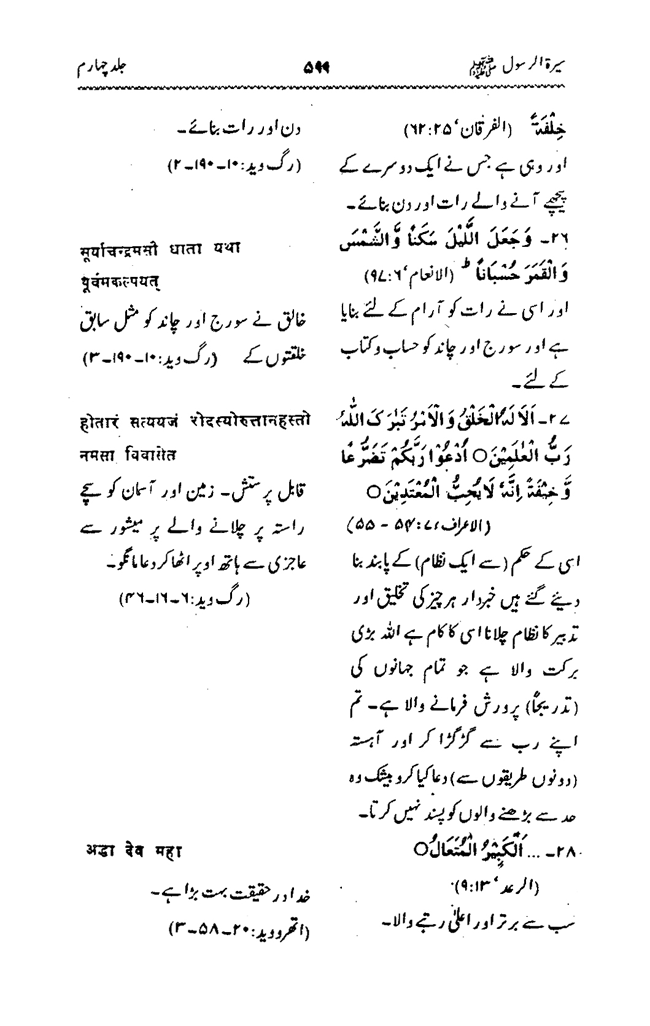 سیرۃ الرسول ﷺ ۵۹۹ جلد چہارم
خِلْفَةً (الفرقان، ۲۵:۶۲)
اور وہی ہے جس نے ایک دوسرے کے
پیچھے آنے والے رات اور دن بنائے۔
۲۶۔ وَجَعَلَ اللَّيْلَ سَكَنًا وَّالشَّمْسَ
وَالْقَمَرَ حُسْبَاناً ؕ (الانعام، ۶:۹۷)
اور اسی نے رات کو آرام کے لئے بنایا
ہے اور سورج اور چاند کو حساب وکتاب
کے لئے۔
۲۷۔ اَلَا لَهُ الْخَلْقُ وَالْاَمْرُ تَبٰرَكَ اللّٰهُ
رَبُّ الْعٰلَمِيْنَ○ اُدْعُوْا رَبَّكُمْ تَضَرُّعًا
وَّخِيْفَةً اِنَّهٗ لَا يُحِبُّ الْمُعْتَدِيْنَ○
(الاعراف، ۷:۵۴ - ۵۵)
اسی کے حکم (سے ایک نظام) کے پابند بنا
دیئے گئے ہیں خبردار ہر چیز کی تخلیق اور
تدبیر کا نظام چلانا اسی کا کام ہے اللہ بڑی
برکت والا ہے جو تمام جہانوں کی
(تدریجاً) پرورش فرمانے والا ہے۔ تم
اپنے رب سے گڑگڑا کر اور آہستہ
(دونوں طریقوں سے) دعا کیا کرو بیشک وہ
حد سے بڑھنے والوں کو پسند نہیں کرتا۔
۲۸۔ ... اَلْكَبِيْرُ الْمُتَعَالُ○
(الرعد، ۱۳:۹)
سب سے برتر اور اعلیٰ رتبے والا۔
دن اور رات بنائے۔
(رگ وید: ۱۰۔۱۹۰۔۲)
सूर्याचन्द्रमसौ धाता यथा
पूर्वमकल्पयत्
خالق نے سورج اور چاند کو مثل سابق
خلقتوں کے (رگ وید: ۱۰۔۱۹۰۔۳)
होतारं सत्ययजं रोदस्योरुत्तानहस्तो
नमसा विवासेत
قابل پرستش۔ زمین اور آسمان کو سچے
راستہ پر چلانے والے پر میشور سے
عاجزی سے ہاتھ اوپر اٹھا کر دعا مانگو۔
(رگ وید: ۶۔۱۶۔۴۶)
अद्धा देव महा
خدا درحقیقت بہت بڑا ہے۔
(اتھرووید: ۲۰۔۵۸۔۳)